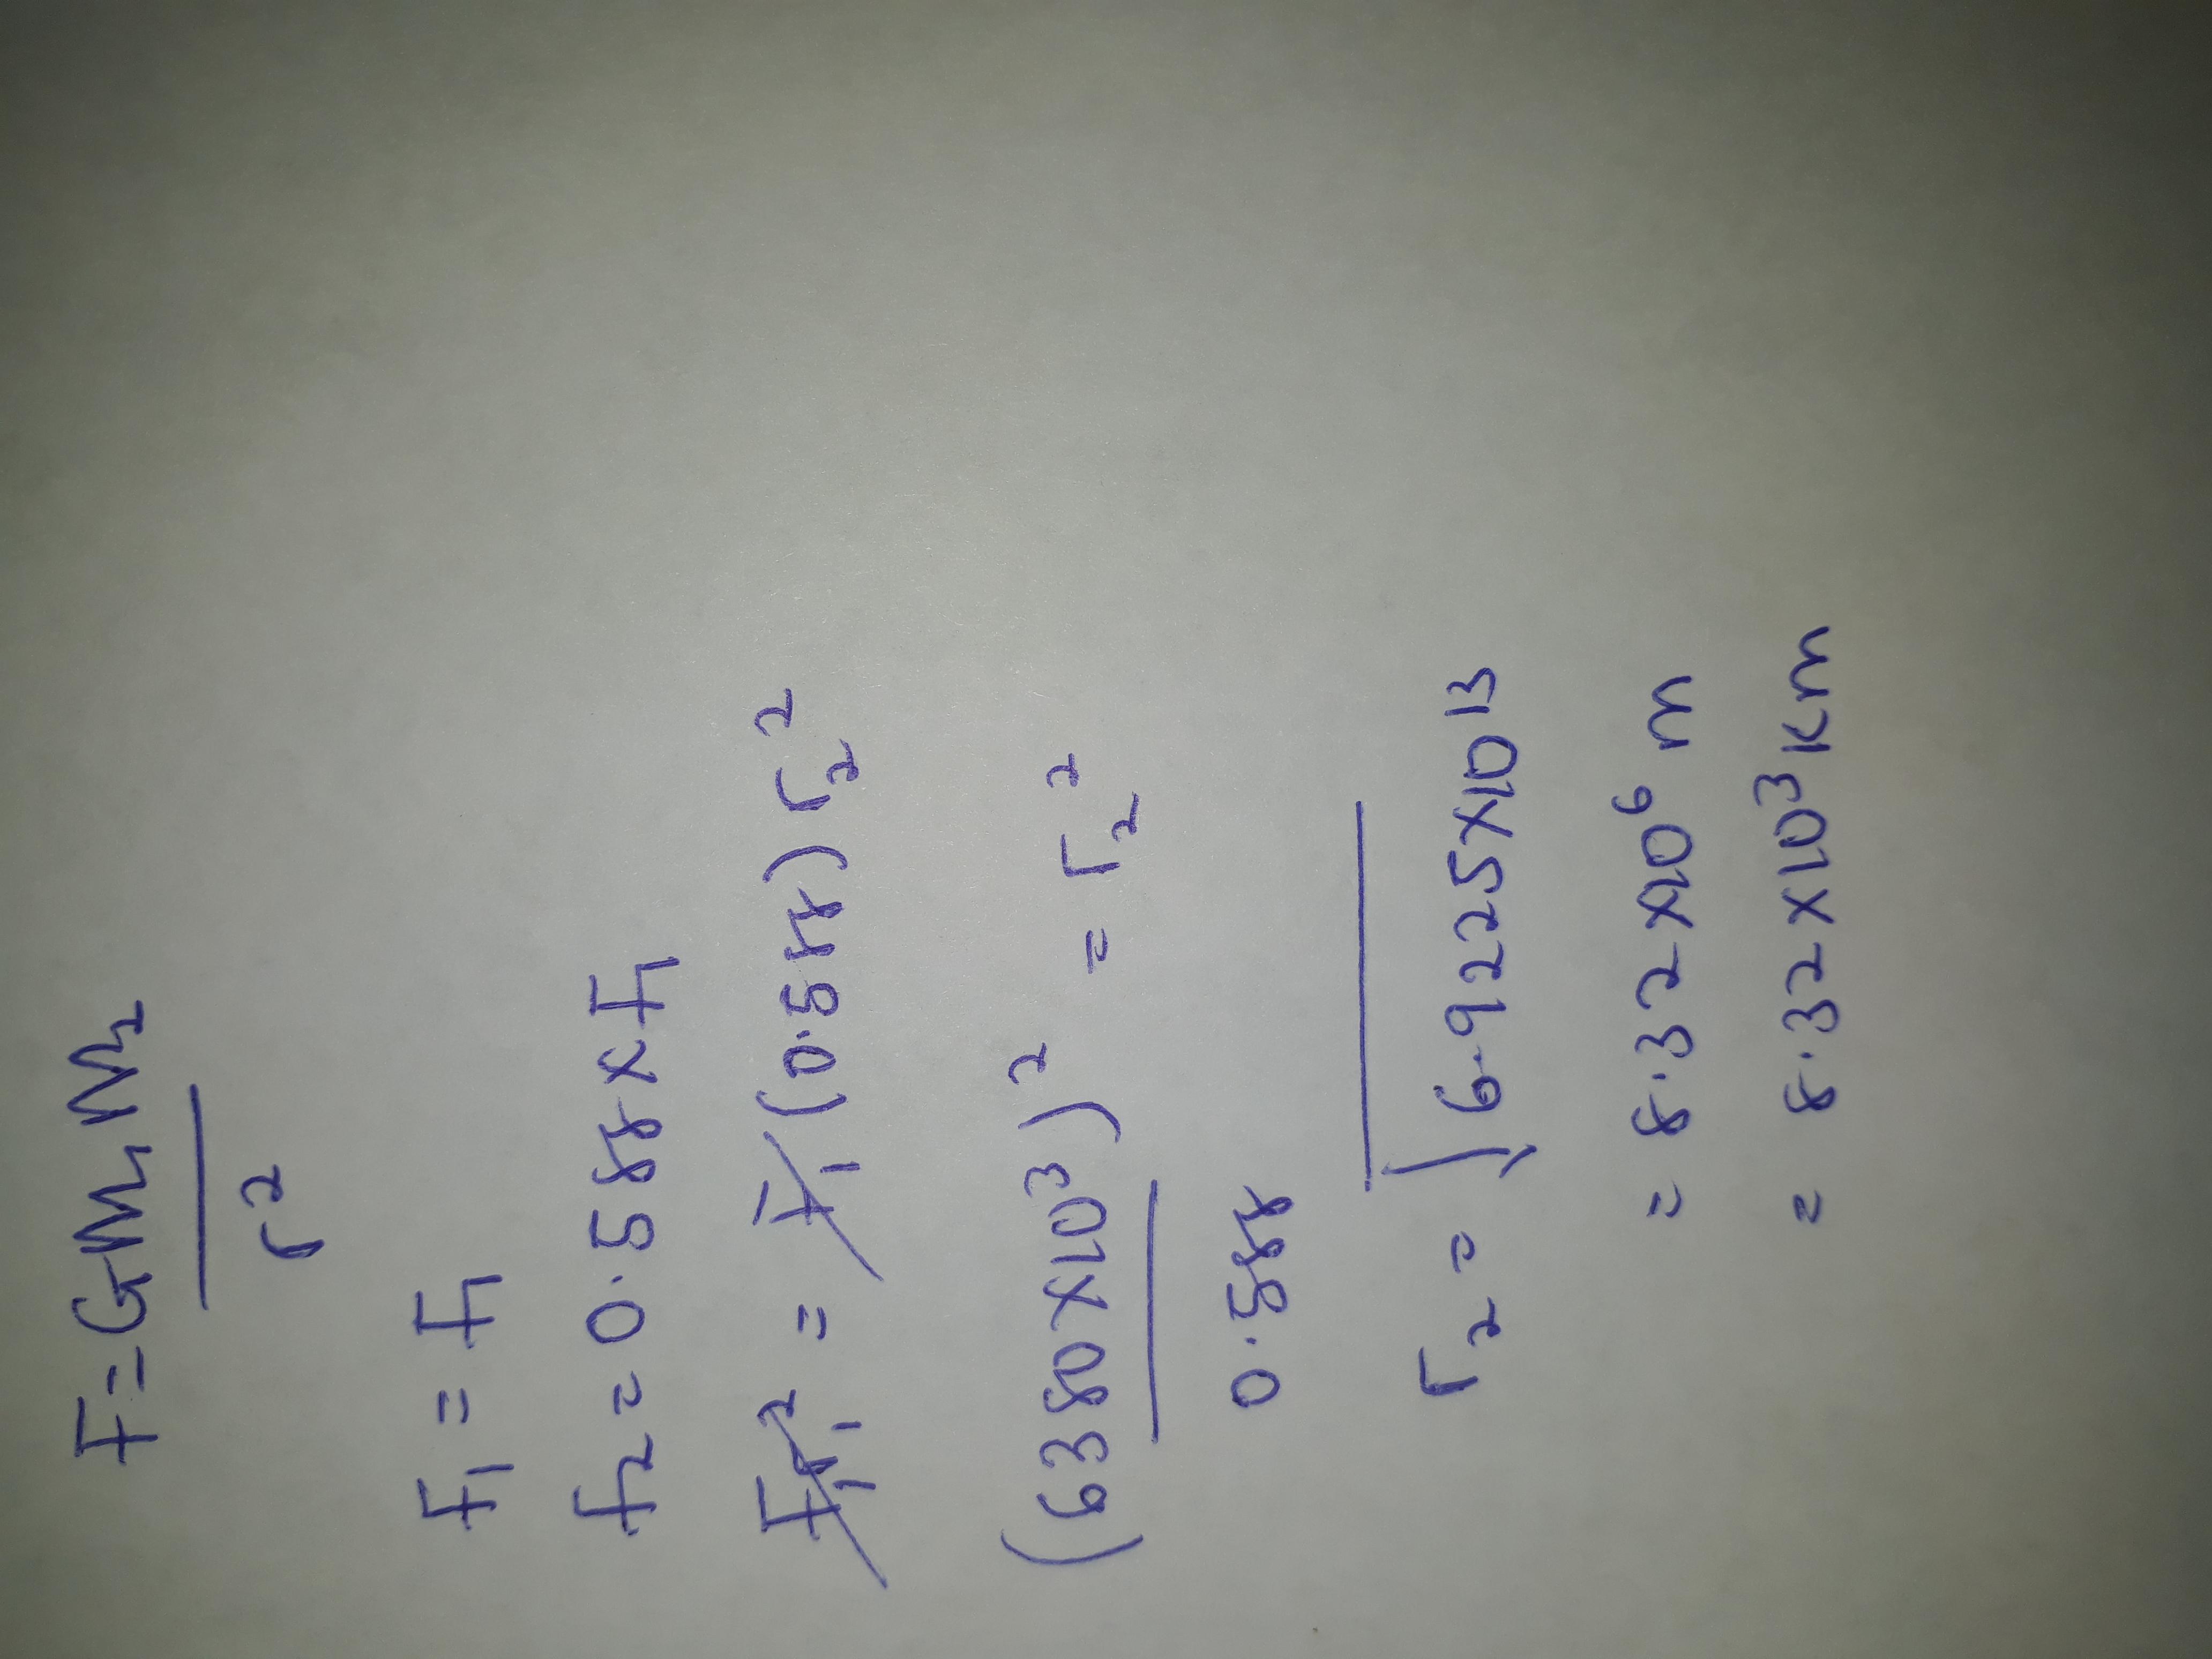 F = Gm₁m₂
r²
F₁ = F₁
F₂ = 0.588 × F₁
F₁r₁² = F₁ (0.588) r₂²
(6380×10³)² = r₂²
0.588
r₂ = √6.9225×10¹³
= 8.32×10⁶ m
= 8.32×10³ km